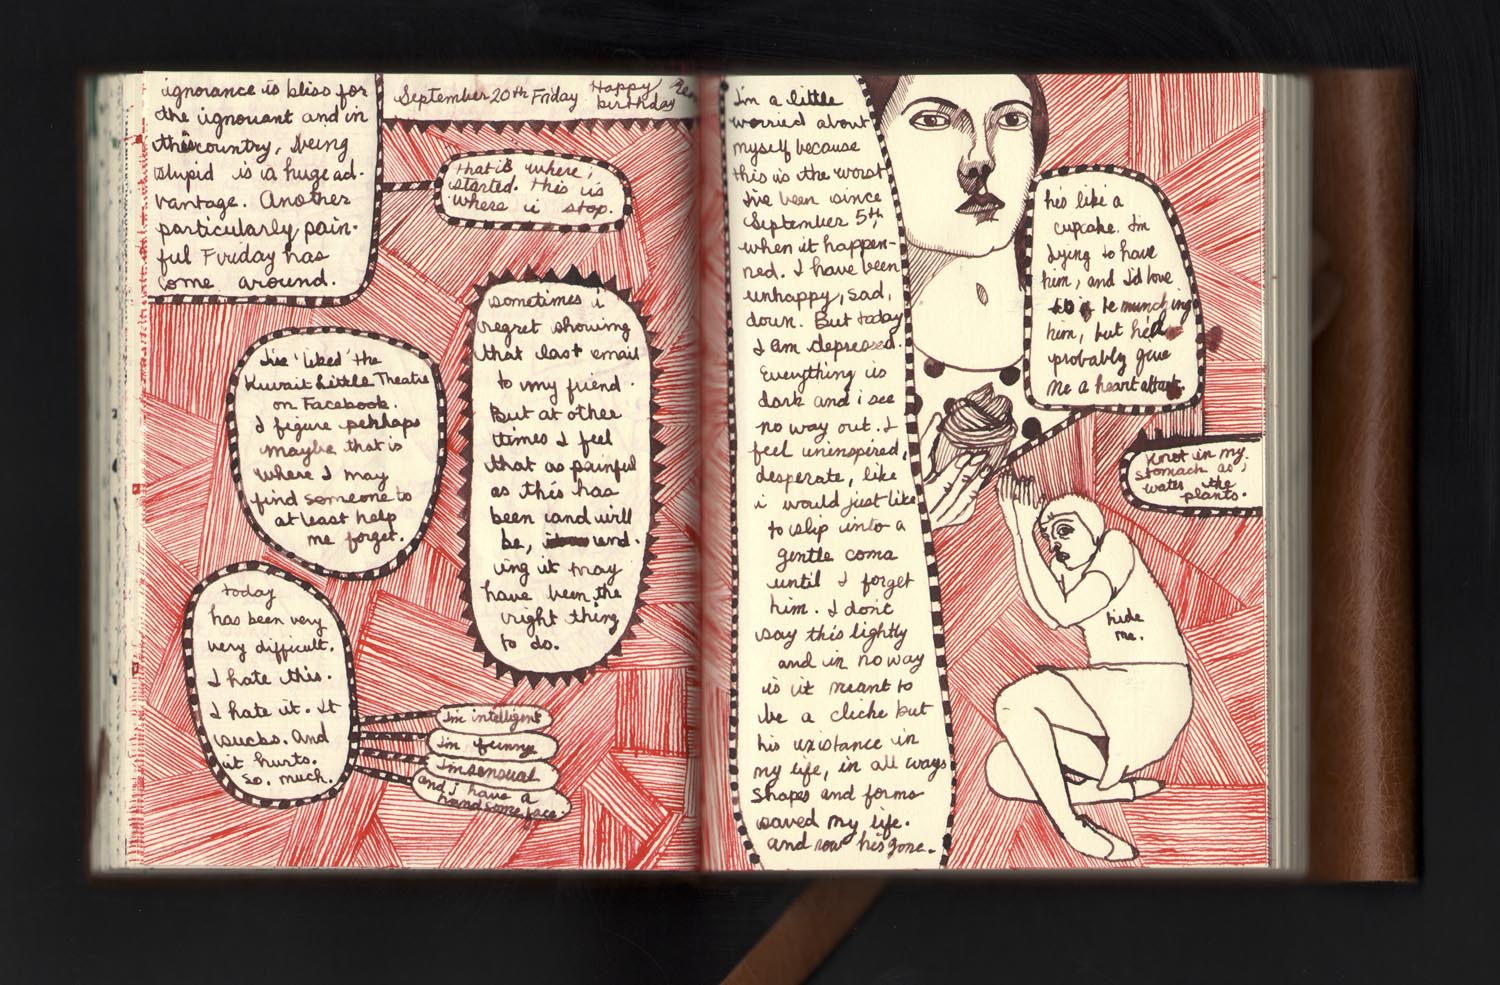 ignorance is bliss for
the ignorant and in
this country, being
stupid is a huge ad-
vantage. Another
particularly pain-
ful Friday has
come around.
September 20th Friday Happy
birthday
that is where i
started. this is
where i stop.
I've 'liked' the
Kuwait Little Theatre
on Facebook.
I figure perhaps
maybe that is
where I may
find someone to
at least help
me forget.
sometimes i
regret showing
that last email
to my friend.
But at other
times I feel
that as painful
as this has
been (and will
be, end-
ing it may
have been the
right thing
to do.
today
has been very
very difficult.
I hate this.
I hate it. It
sucks. And
it hurts.
So. much.
I'm intelligent
I'm funny
I'm sensual
and I have a
handsome face
I'm a little
worried about
myself because
this is the worst
I've been since
September 5th
when it happen-
ned. I have been
unhappy, sad,
down. But today
I am depressed.
Everything is
dark and i see
no way out. I
feel uninspired,
desperate, like
i would just like
to slip into a
gentle coma
until I forget
him. I don't
say this lightly
and in no way
is it meant to
be a cliche but
his existance in
my life, in all ways
shapes and forms
saved my life.
and now he's gone.
he's like a
cupcake. I'm
dying to have
him, and I'd love
to be munching
him, but he'd
probably give
me a heart attack.
knot in my
stomach as i
water the
plants.
hide
me.